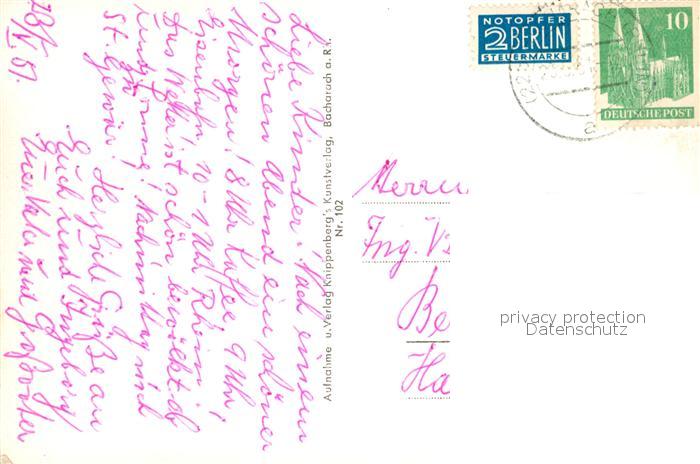 28/IV. 51.
Liebe Kinder! Nach einem
schönen Abend ein schöner
Morgen! 8 Uhr Kaffee, 9 Uhr
Eisenbahn, 10-1 Uhr Rhein!
Das Wetter ist schön bewölkt ob
und sonnig! Nachmittag nach
St. Goar.
Herzliche Grüße an
Euch und Ingeborg
Vater und
Aufnahme u. Verlag Knippenberg's Kunstverlag, Bacharach a. Rh.
Nr. 102
NOTOPFER
2 BERLIN
STEUERMARKE
10
DEUTSCHE POST
(22
a
Herrn
Ing.
Be
Ha
privacy protection
Datenschutz